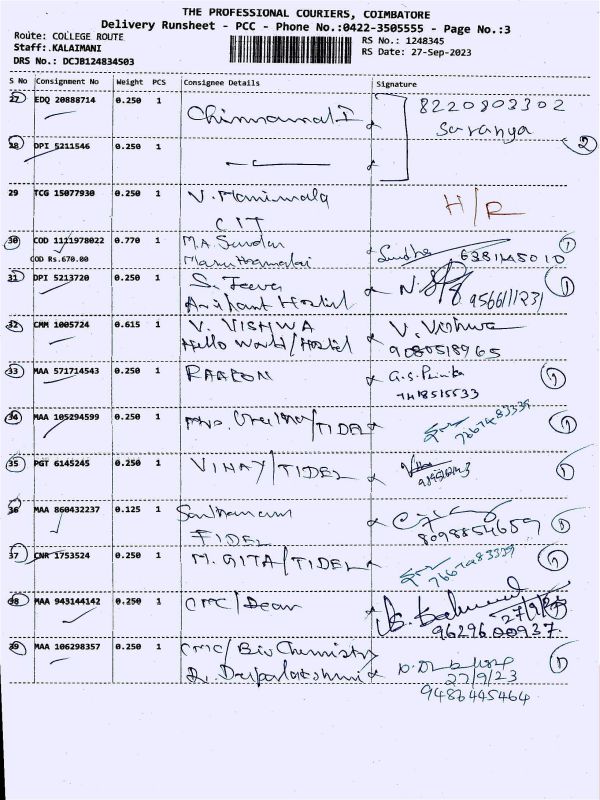 THE PROFESSIONAL COURIERS, COIMBATORE
Delivery Runsheet - PCC - Phone No.:0422-3505555 - Page No.:3
Route: COLLEGE ROUTE
RS No.: 1248345
Staff:.KALAIMANI
RS Date: 27-Sep-2023
DRS No.: DCJB124834503
S No Consignment No Weight PCS Consignee Details Signature
27 EDQ 20888714 0.250 1 8220803302
Saranya
28 DPI 5211546 0.250 1 2
29 TCG 15077930 0.250 1 V. Manimala H/R
CIT
30 COD 1111978022 0.770 1 M.A. Sundar Sudha 6381145010 1
COD Rs.670.00
31 DPI 5213720 0.250 1 S. Jeeva N. 9566111231 1
Arihant Hostel
32 CMM 1005724 0.615 1 V. VISHWA V. Vishwa
Hello World/Hostel 9080518965
33 MAA 571714543 0.250 1 G.S. 1
7418515533
34 MAA 105294599 0.250 1 /TIDEL 1
35 PGT 6145245 0.250 1 VINAY/TIDEL 1
36 MAA 860432237 0.125 1 8098854659 1
TIDEL
37 CNR 1753524 0.250 1 M. GITA/TIDEL 1
38 MAA 943144142 0.250 1 CMC/Dean 27/9/23
9629600937
39 MAA 106298357 0.250 1 CMC/Bio Chemistry 1
27/9/23
9487445464